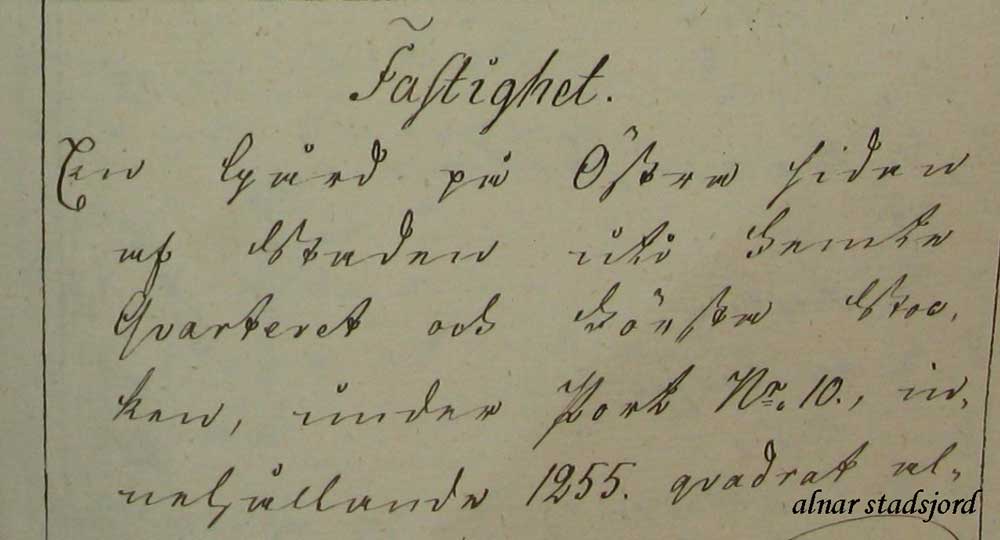 Fastighet.
En Gård på Östra sidan
af Staden uti Femte
Qvarteret och Första Stoc-
ken, under Port Nr. 10., in-
nehållande 1255. quadrat al-
alnar stadsjord